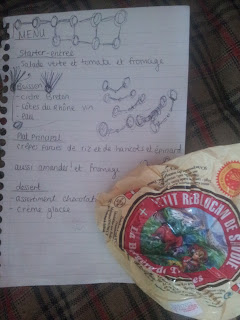 MENU
Starter-entrée
Salade verte et tomate et fromage
Boisson
- cidre breton
- côtes du Rhône vin
- eau
Plat Principal
crêpes farcies de riz et de haricots et épinard
aussi amander! et fromage
dessert
- assortiment chocolat
- crème glacée
P'TIT REBLOCHON DE SAVOIE